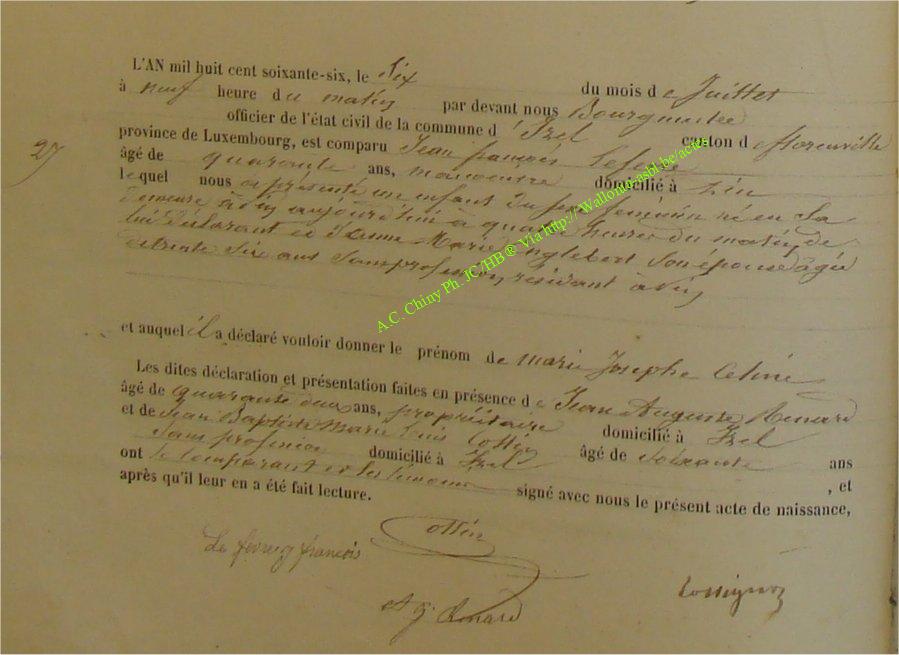 L'AN mil huit cent soixante-six, le Six du mois de Juillet
à neuf heure du matin par devant nous Bourgmestre
officier de l'état civil de la commune d'Izel canton de florenville
27
province de Luxembourg, est comparu Jean françois Lefevre
âgé de quarante ans, manoeuvre domicilié à
lequel nous a présenté un enfant du sexe féminin né en sa
demeure aujourd'hui à quatre heures du matin, de
lui déclarant et Marie Englebert son épouse âgée
de trente six ans sans profession, résidant
et auquel il a déclaré vouloir donner le prénom de marie Josephe Celine
Les dites déclaration et présentation faites en présence de Jean Auguste Renard
âgé de quarante deux ans, propriétaire domicilié à Izel
et de Jean Baptiste Marie Louis Ottin âgé de soixante ans
sans profession domicilié à Izel, et
ont le comparant et les témoins signé avec nous le présent acte de naissance,
après qu'il leur en a été fait lecture.
Ottin
Le fevre françois
Rossignon
Renard
A.C. Chiny Ph. JC HB® Via http://Wallonia-asbl.be/actes